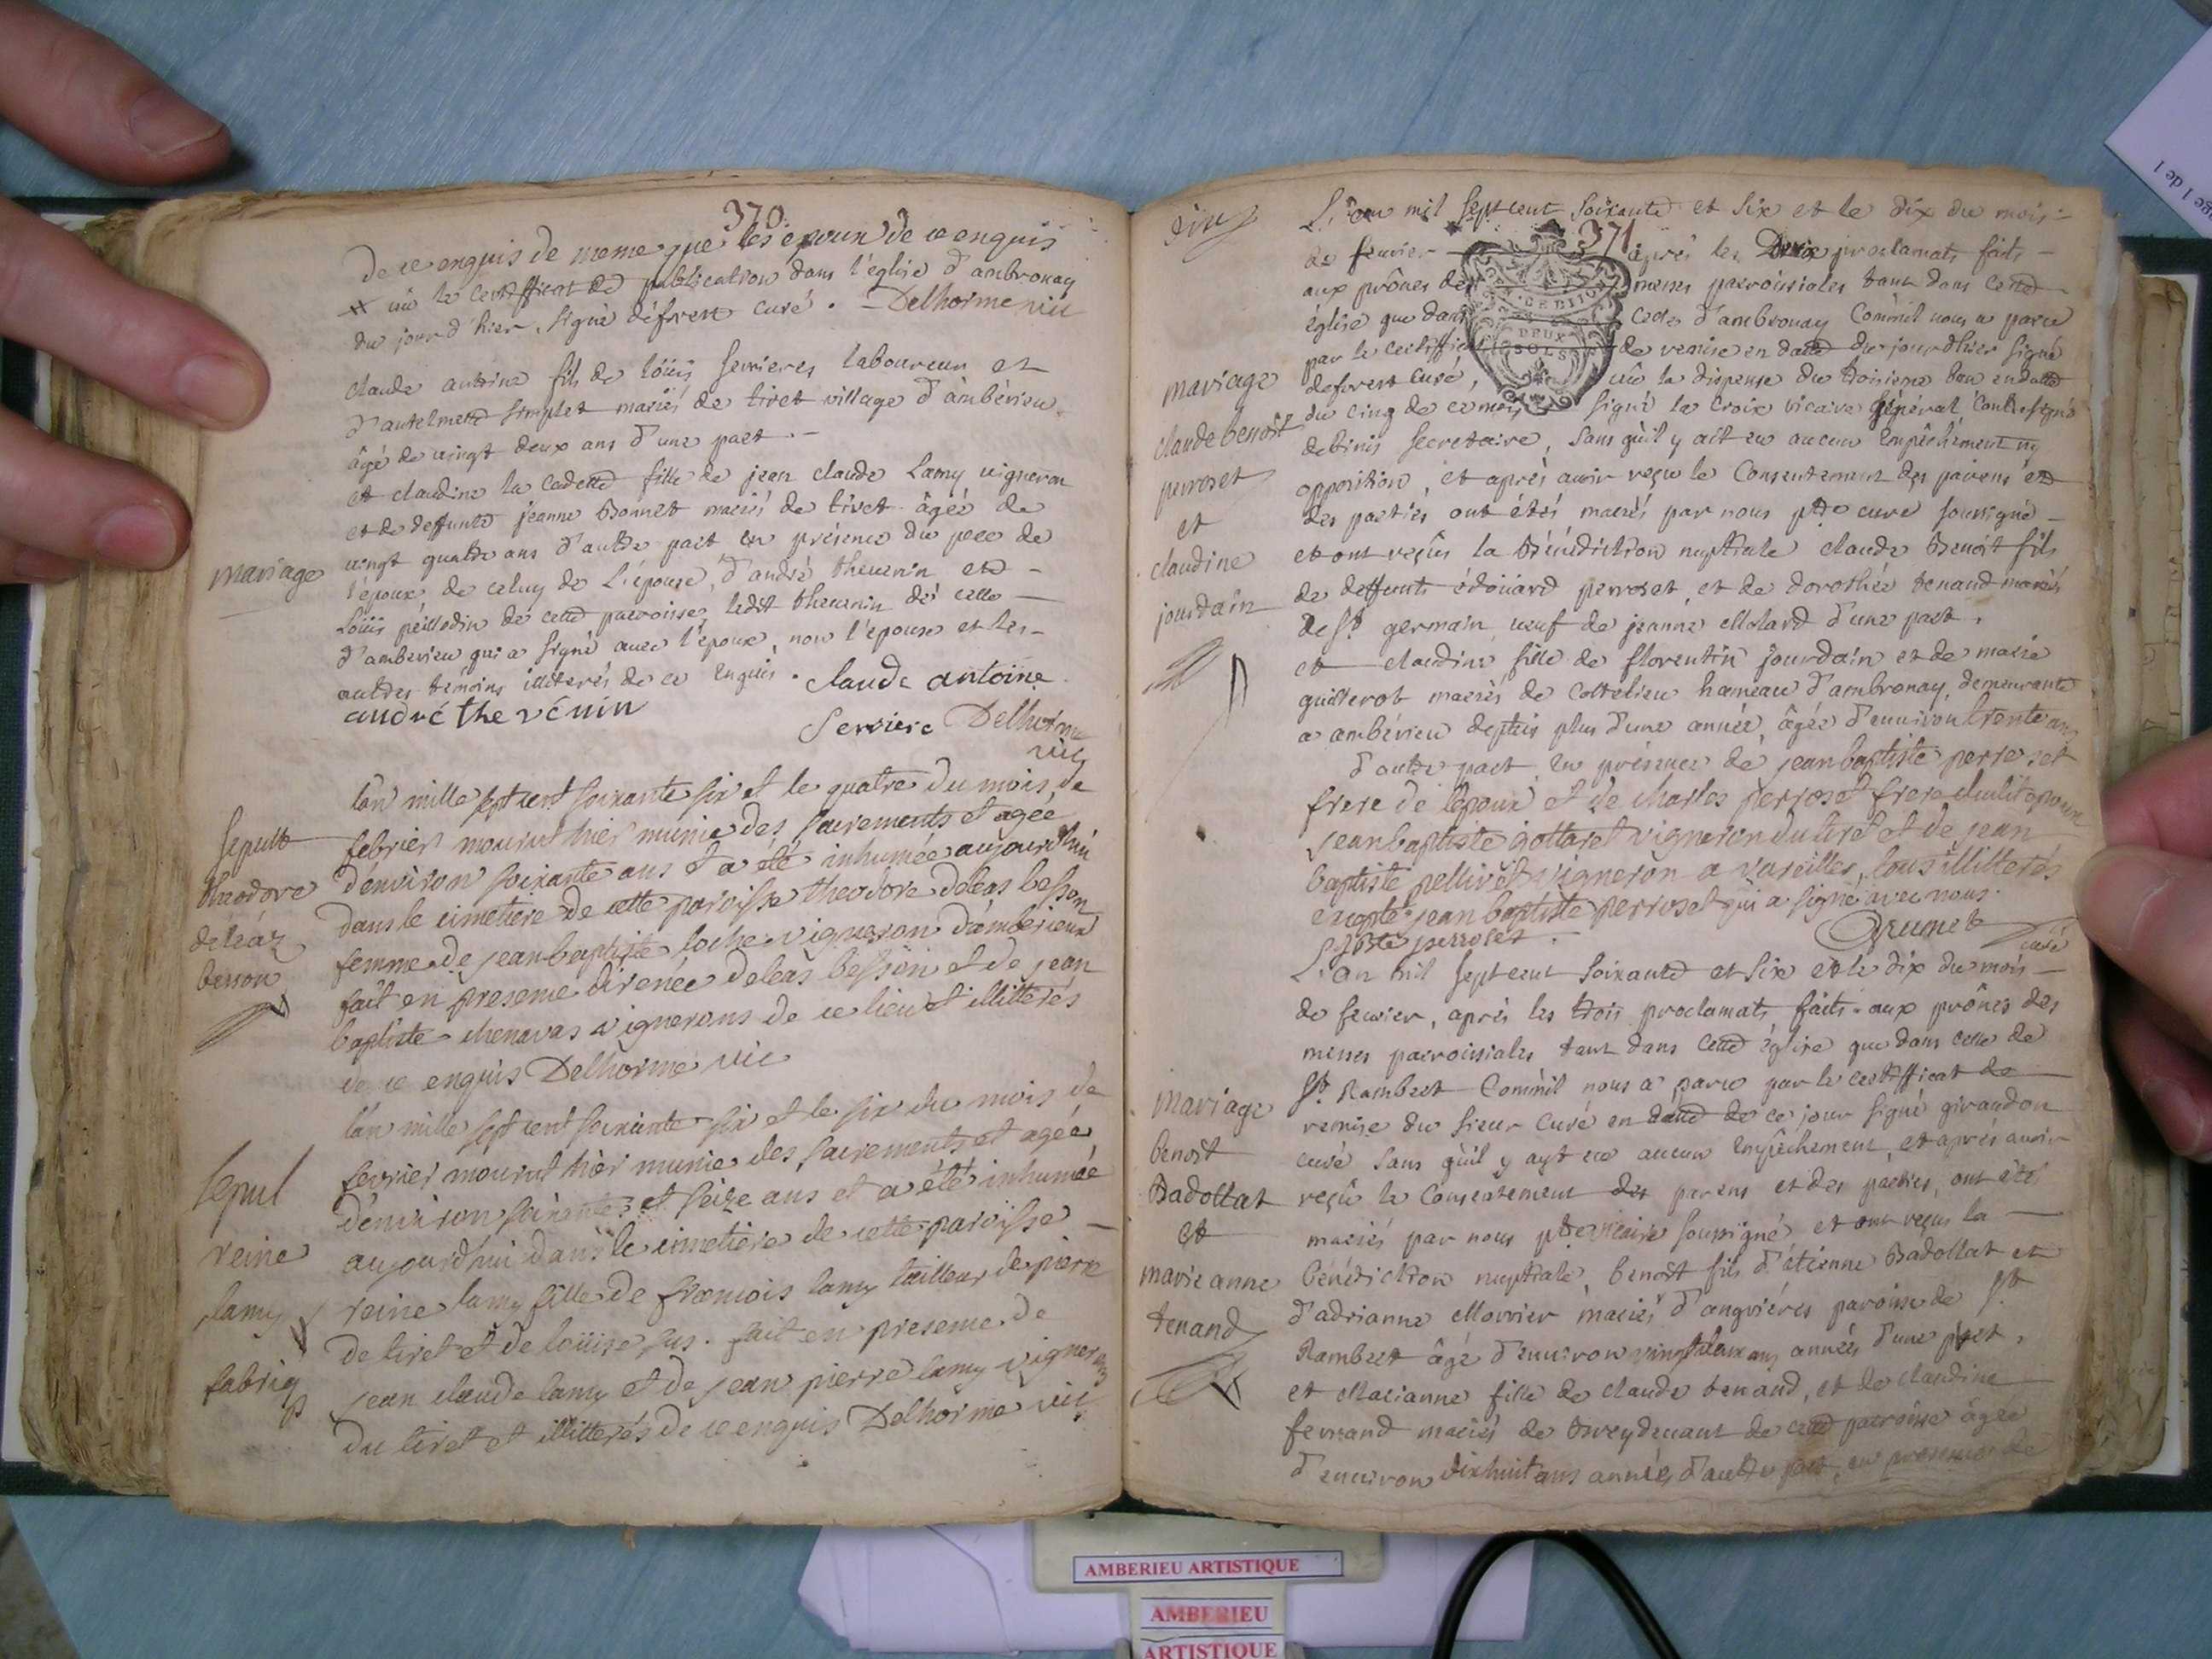 370.
de ce enquis de meme que les epoux de ce enquis
vû le certifficat de publication dans l'église d'ambronay
du jour d'hier signé déforest curé. Delhorme vic
claude antoine fils de loüis serrieres laboureur et
d'antelmette simplet mariés de tiret village d'ambérieu
âgé de vingt deux ans d'une part.
et claudine la cadette fille de jean claude Lamy vigneron
et de deffunte jeanne Bonnet mariés de tiret âgée de
vingt quatre ans d'autre part en présence du pere de
mariage
l'époux de celuy de L'épouse, d'andré thevenin et
loüis péillodin de cette paroisse, ledit thevenin de celle
d'amberieu qui a signé avec l'époux, non l'épouse et les
autres témoins illiterés de ce enquis. claude antoine
andré thevénin
Serriere Delhorme
vic
l'an mille sept cent soixante six et le quatre du mois de
sepult
theodore
deleaz
besson
febrier mourut hier munie des sacrements et agée
d'environ soixante ans et a été inhumée aujourd'hui
dans le cimetiere de cette paroisse theodore deleas besson
femme de jean baptiste loche vigneron d'amberieux
fait en presence d'irenée deleas besson et de jean
baptiste chenavas vignerons de ce lieu et illitterés
de ce enquis Delhorme vic
l'an mille sept cent soixante six et le six du mois de
sepul
reine
lamy
fabriq
fevrier mourut hier munie des sacrements et agée
d'environ soixante et seize ans et a été inhumée
aujourd'hui dans le cimetiere de cette paroisse
reine lamy fille de francois lamy tailleur de pierre
de tiret et de loüise jus. fait en presence de
jean claude lamy et de jean pierre lamy vignerons
du tiret et illitterés de ce enquis Delhorme vic
371
L'an mil sept cent soixante et six et le dix du mois
de fevrier après les Deux proclamats faits
aux prônes des messes paroissiales tant dans cette
église que dans celle d'ambronay Comm'il nous a paru
par le certifficat de remise en datte du jour d'hier signé
deforest curé, vû la dispense du troisieme ban en datte
GEN
DEUX
SOLS
mariage
claude benoît
perroset
et
claudine
jourdain
du cinq de ce mois signé la croix vicaire général Contresigné
debinis secretaire, sans qu'il y ait eu aucun Empêchement ny
opposition, et après avoir reçu le Consentement des parens et
des parties ont étés mariés par nous ptre curé soussigné
et ont reçus la Bénédiction nuptiale claude Benoît fils
de deffunts édoüard perroset, et de dorothée tenand mariés
de St germain veuf de jeanne Molard d'une part,
et claudine fille de florentin jourdain et de marie
guillerot mariés de Cottelieu hameau d'ambronay, demeurante
a ambérieu depuis plus d'une année, âgée d'environ trente ans
d'autre part en présence de jean baptiste perroset
frere de l'epoux et de charles perroset frere dudit epoux
jean baptiste gottaret vigneron du tiret et de jean
baptiste pellivet vigneron a vareilles, tous illitterés
excepté jean baptiste perroset qui a signé avec nous.
perroset. Brunet
curé
L'an mil sept cent soixante et six et le dix du mois
de fevrier, après les trois proclamats faits aux prônes des
messes paroissiales tant dans cette église que dans celle de
St Rambert Comm'il nous a paru par le certifficat de
mariage
benoît
Badollat
et
marie anne
tenand
remise du sieur curé en datte de ce jour signé giraudon
curé sans qu'il y ayt eu aucun empêchement, et après avoir
reçû le Consentement des parens et des parties, ont étés
mariés par nous ptre vicaire soussigné et ont reçus la
bénédiction nuptiale, benoît fils d'étienne Badollat et
d'adrianne Morrier mariés d'angrières paroisse de St
Rambert âgé d'environ vingt deux ans années d'une part,
et Marianne fille de claude tenand, et de claudine
ferrand mariés de Breydevant de cette paroisse âgée
d'environ dix huit ans années d'autre part, en presence de
AMBERIEU ARTISTIQUE
AMBERIEU
ARTISTIQUE